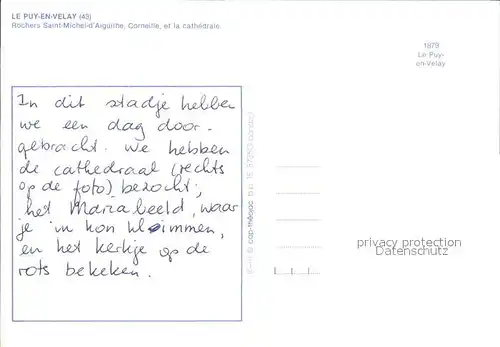 LE PUY-EN-VELAY (43)
Rochers Saint-Michel-d'Aiguilhe, Corneille, et la cathédrale.
1879
Le Puy-
en-Velay
In dit stadje hebben
we een dag door-
gebracht. We hebben
de cathedraal (rechts
op de foto) bezocht;
het Mariabeeld, waar
je in kon klimmen,
en het kerkje op de
rots bekeken.
privacy protection
Datenschutz